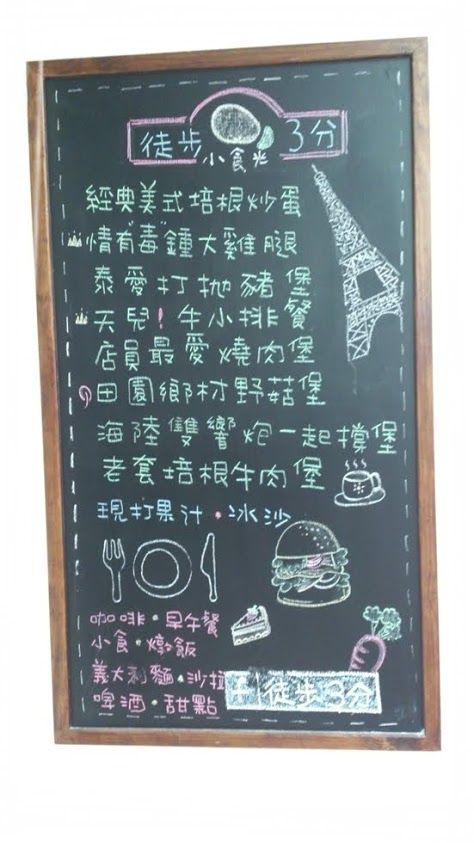 徒步 3分
小食光
經典美式培根炒蛋
情有"毒"鍾大雞腿
泰愛打拋豬堡
天兒!牛小排餐
店員最愛燒肉堡
田園鄉村野菇堡
海陸雙響炮一起撐堡
老套培根牛肉堡
現打果汁・冰沙
咖啡・早午餐
小食・燉飯
義大利麵・沙拉
啤酒・甜點
徒步3分